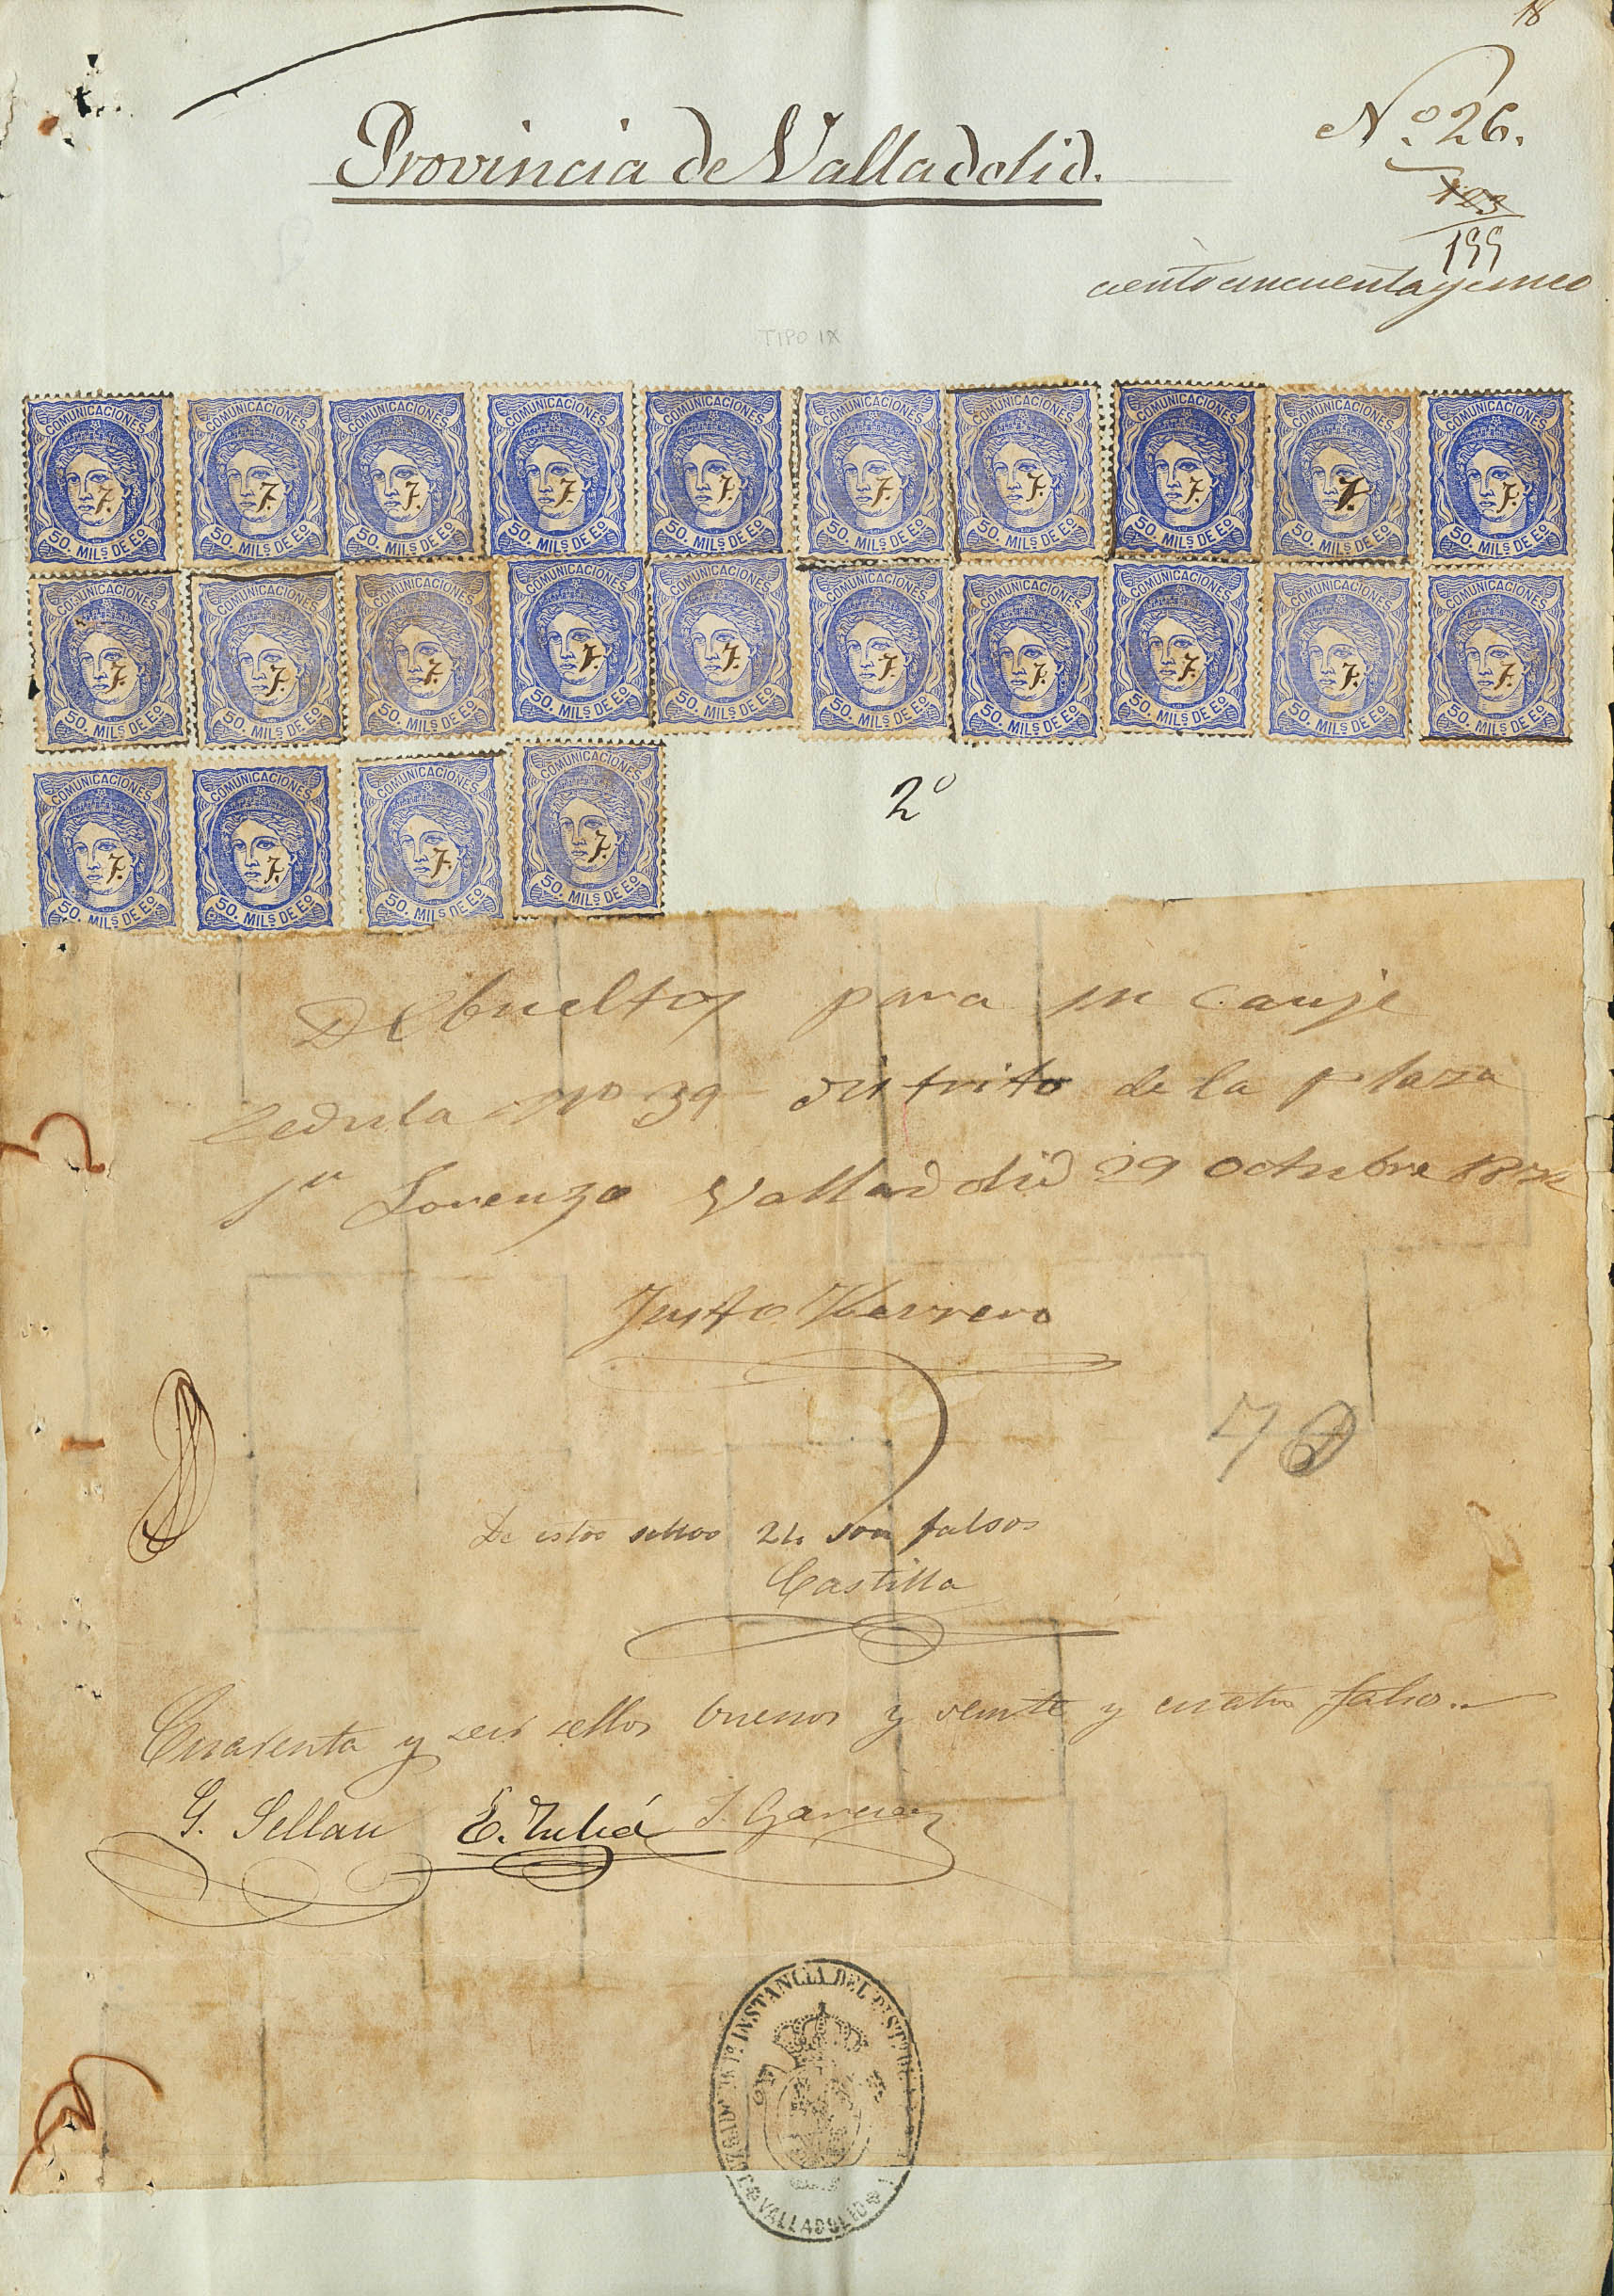 18
Provincia de Valladolid.
Nº 26.
123
155
ciento cincuenta y cinco
TIPO IX
COMUNICACIONES COMUNICACIONES COMUNICACIONES COMUNICACIONES COMUNICACIONES COMUNICACIONES COMUNICACIONES COMUNICACIONES COMUNICACIONES COMUNICACIONES
F. F. F. F. F. F. F. F. F. F.
50. MILS DE Eº 50. MILS DE Eº 50. MILS DE Eº 50. MILS DE Eº 50. MILS DE Eº 50. MILS DE Eº 50. MILS DE Eº 50. MILS DE Eº 50. MILS DE Eº 50. MILS DE Eº
COMUNICACIONES COMUNICACIONES COMUNICACIONES COMUNICACIONES COMUNICACIONES COMUNICACIONES COMUNICACIONES COMUNICACIONES COMUNICACIONES COMUNICACIONES
F. F. F. F. F. F. F. F. F. F.
50. MILS DE Eº 50. MILS DE Eº 50. MILS DE Eº 50. MILS DE Eº 50. MILS DE Eº 50. MILS DE Eº 50. MILS DE Eº 50. MILS DE Eº 50. MILS DE Eº 50. MILS DE Eº
COMUNICACIONES COMUNICACIONES COMUNICACIONES COMUNICACIONES
F. F. F. F.
50. MILS DE Eº 50. MILS DE Eº 50. MILS DE Eº 50. MILS DE Eº
2º
Debueltos para su canje
Cedula nº 39 distrito de la plaza
Sn Lorenzo Valladolid 29 octubre
Justo Herrero
70
De estos sellos 24 son falsos
Castilla
Cuarenta y seis sellos buenos y veinte y cuatro falsos
G. Sellan E. Juliá J. Garcia
JUZGADO DE 1ª INSTANCIA DEL DISTO DE
VALLADOLID